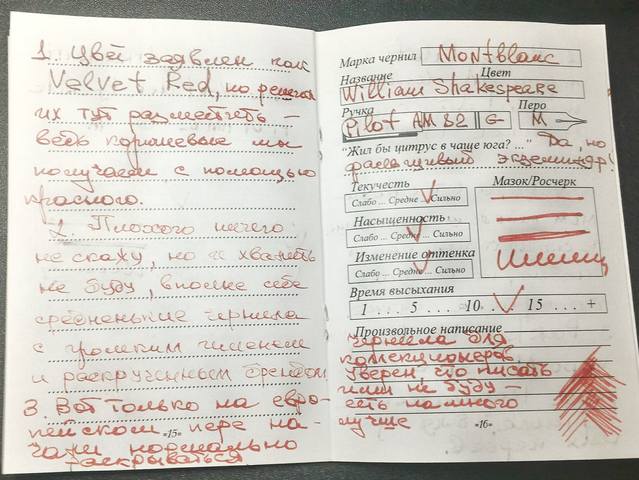 1. Цвет заявлен как
Velvet Red, но решил
их тут разместить –
ведь коричневые мы
получаем с помощью
красного.
2. Плохого ничего
не скажу, но и хвалить
не буду, вполне себе
средненькие чернила
с громким именем
и раскрученным брендом
3. Вот только на евро-
пейском пере на-
чали нормально
раскрываться
«15»
Марка чернил Montblanc
Название Цвет
William Shakespeare
Ручка Перо
Pilot AM 82 G- M
"Жил бы цитрус в чаще юга? ..." Да, но
фальшивый экземпляр!
Текучесть
Слабо ... Средне ... Сильно
Насыщенность
Слабо ... Средне ... Сильно
Изменение оттенка
Слабо ... Средне ... Сильно
Мазок/Росчерк
Время высыхания
1 ... 5 ... 10 ... 15 ... +
Произвольное написание
Чернила для
коллекционеров
Уверен, что писать
ими не буду –
есть намного
лучше
«16»